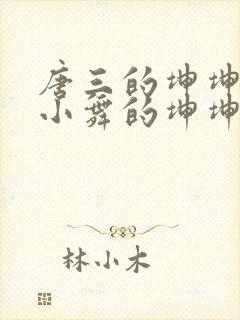 唐三的坤坤
小舞的坤坤
林小木